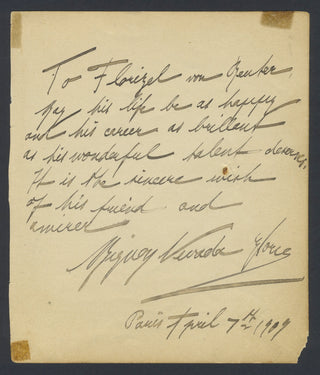 To Florizel von Reuter,
May his life be as happy
and his career as brillant
as his wonderful talent deserves.
It is the sincere wish
of his friend and
amirer
Nevada
Paris April 7th 1909